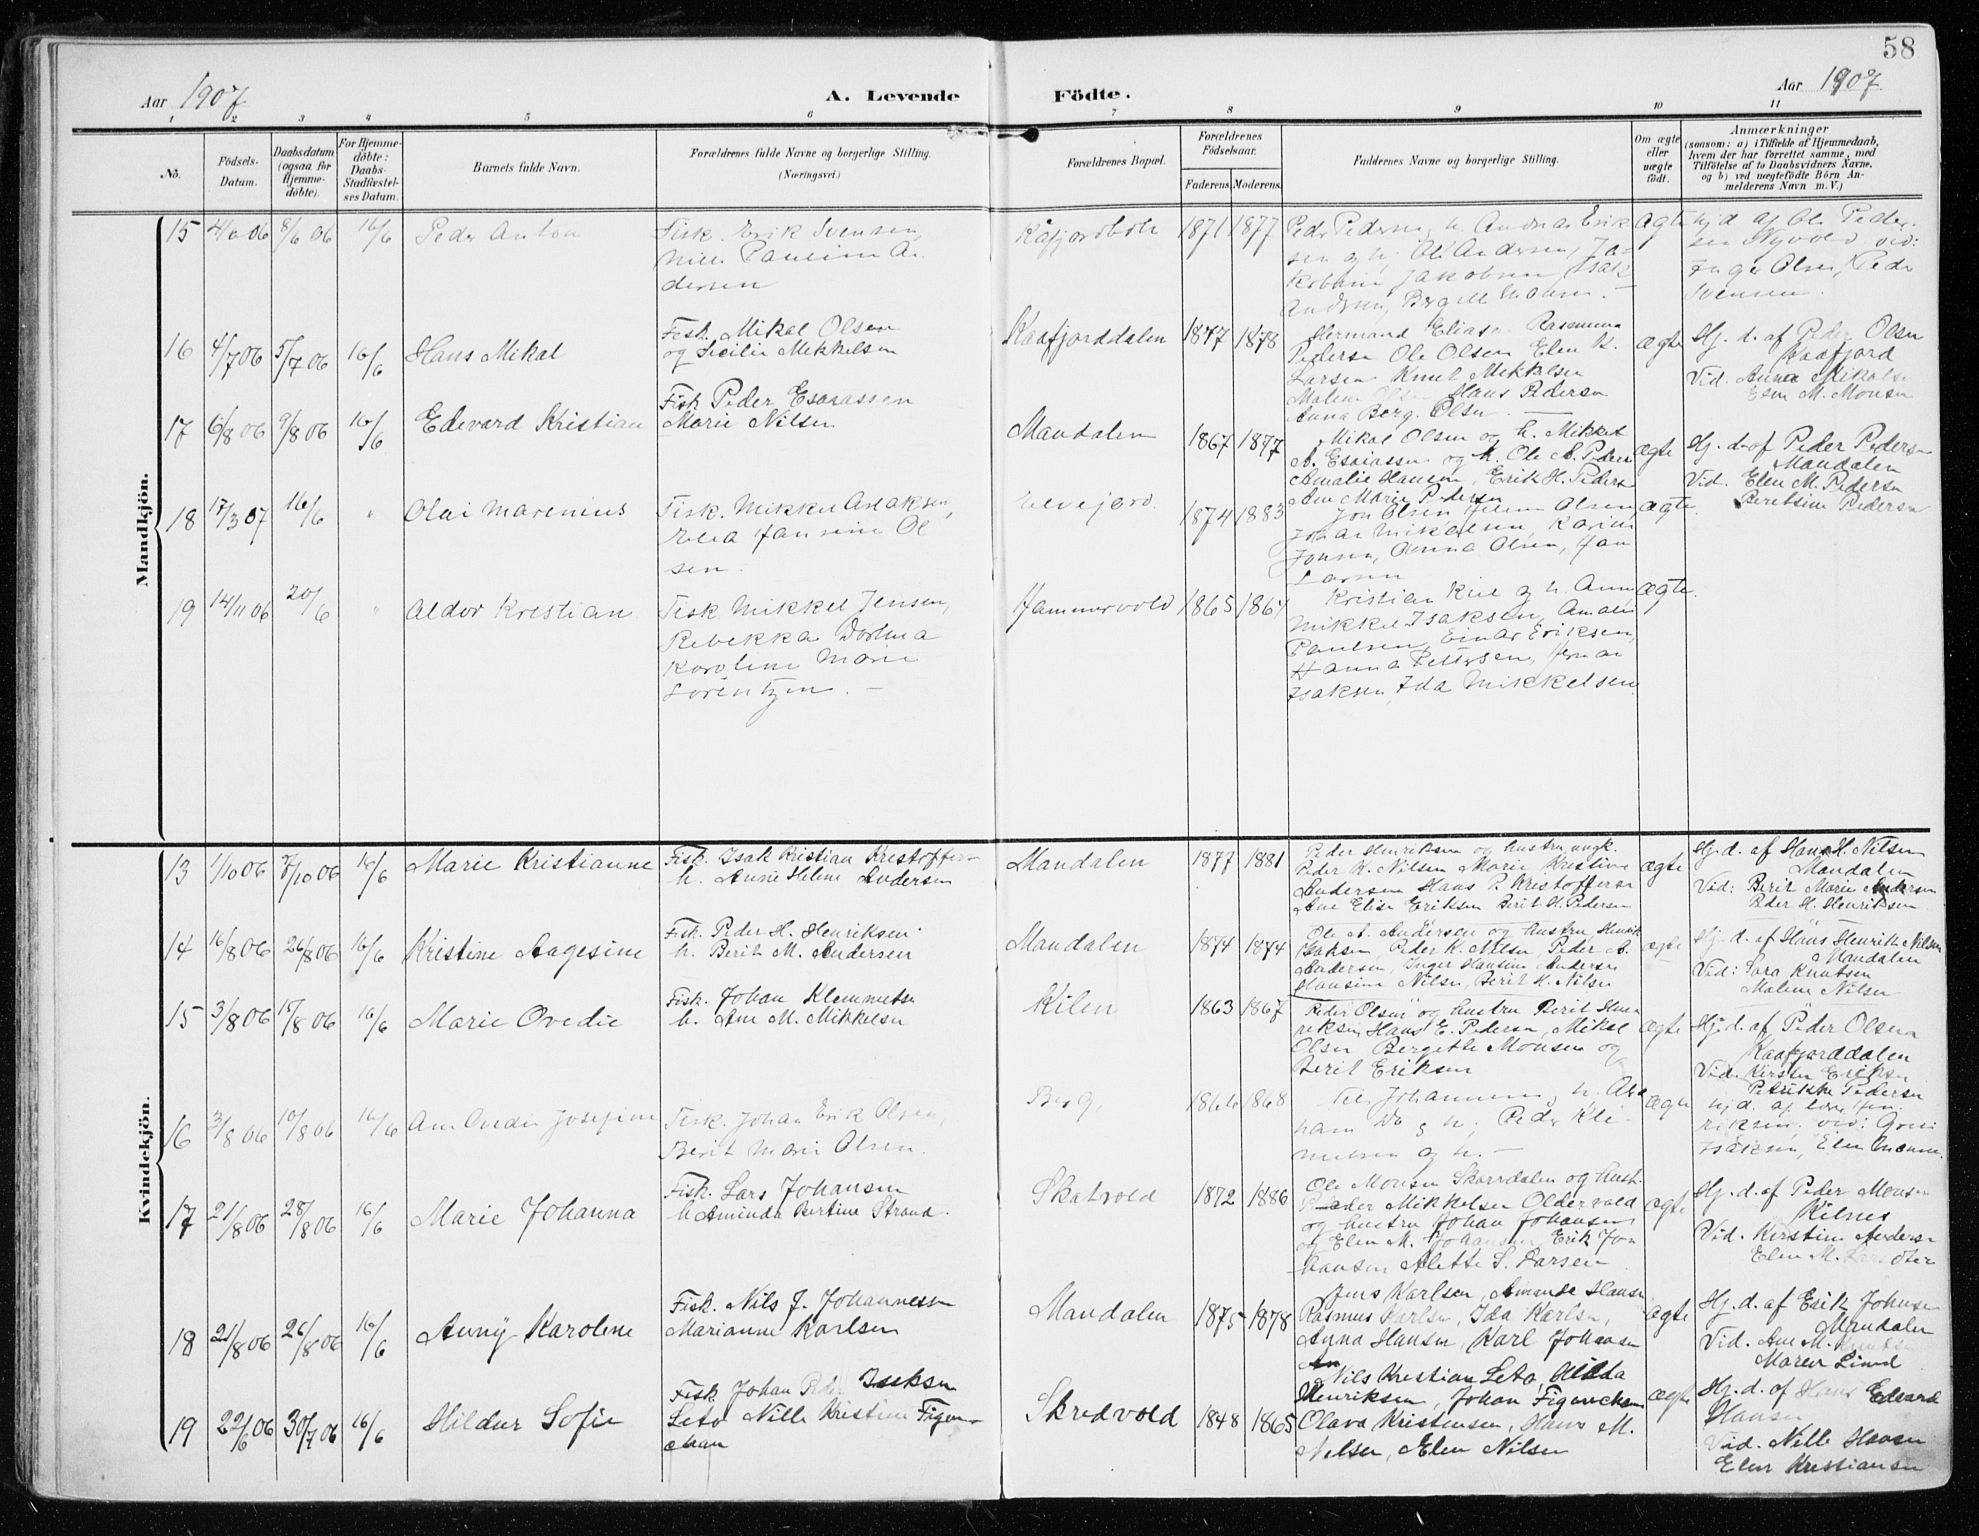 58
Aar 1907
A. Levende Födte.
Aar 1907
1 2 3 4 5 6 7 8 9 10 11
No.
Födsels-
Datum.
Daabsdatum
(ogsaa for
Hjemme-
döbte).
For Hjemme-
döbte:
Daabs-
Stadfæstel-
ses Datum.
Barnets fulde Navn.
Forældrenes fulde Navne og borgerlige Stilling.
(Næringsvei.)
Forældrenes Bopæl.
Forældrenes
Födselsaar.
Faderens. Moderens.
Faddernes Navne og borgerlige Stilling.
Om ægte
eller
uægte
født.
Anmærkninger
(saasom: a) i Tilfælde af Hjemmedaab,
hvem der har forrettet samme, med
Tilföielse af to Daabsvidners Navne,
og b) ved uægtefödte Börn An-
melderens Navn m. V.)
Mandkjön.
15 4/6 06 8/6 06 16/6 Peder Anton
Fisk. Erik Svensen,
Paulina An
dersen
Kåfjordbotn 1871 1877
Peder Pedersen, h. Andreas Erik
sen og h. Ole Andersen, Ja-
kobine Jakobsen, Isak
Andersen, Bergit Monsen. —
ægte
hjd af Ole Peder
sen Nyvold vid:
Inger Olsen, Peder
Svensen.
16 4/7 06 5/7 06 16/6 Hans Mikal
Fisk. Mikal Olsen
og Sicilie Mekkelsen
Kaafjorddalen 1877 1878
Hermand Eliasen Rasmus
Pedersen Ole Olsen Elen K.
Larsen Knut Mekkelsen
Malene Olsen Hans Pedersen
Anna Berg. Olsen —
ægte
Hj. d. af Peder Olsen
Kaafjord
Vid. Anna Mikalse
Elen M. Monsen
17 6/8 06 9/8 06 16/6 Edevard Kristian
Fisk Peder Esaiassen
Marie Nilsen
Mandalen 1867 1877
Mikal Olsen og h. Mikkel
A. Esaiassen og h. Ole A. Peders
Amalie Hansen, Erik H. Peders
Ane Marie Pedersen
ægte
Hj. d. af Peder Pedersen
Mandalen
Vid. Elen M. Pedersen
Beretsine Pedersen
18 17/3 07 16/6 " Olai Marenius
Fisk. Mikkel Aslaksen,
Elea Hansine Ol
sen.
Elvejord. 1874 1883
Jon Olsen, Elene Olsen
Johan Mikalsen, Karin
Jonsen, Anna Olsen, Han
Larsen
ægte.
19 14/11 06 20/6 " Aldor Kristian
Fisk Mikkel Jensen,
Rebekka Dortea
Karoline Marie
Lorentzen. —
Hammervold 1865 1867
Kristian Kiil og h. Anne
Mikkel Isaksen, Amalie
Paulsen, Einar Eriksen,
Hanna Pettersen,
Isaksen, Ida Mikkelsen
Ægte.
Kvindekjön.
13 1/10 06 7/10 06 16/6 Marie Kristianne
Fisk. Isak Kristian Krestoffersen
h. Anne Helene Andersen
Mandalen 1877 1881
Peder Henriksen og hustru ungk.
Peder K. Nilsen Marie Kristine
Andersen Hans P. Krestoffersen
Ane Elise Eriksen Berit H. Pedersen
ægte
Hj. d. af Hans H. Nilsen
Mandalen
Vid: Berit Marie Andersen
Peder H. Henriksen
14 16/8 06 26/8 06 16/6 Kristine Aagesine
Fisk. Peder H. Henriksen
h. Berit M. Andersen
Mandalen 1874 1874
Ole A. Andersen og hustru Henrik
Isaksen, Peder K. Nilsen, Peder A.
Andersen, Inger Hansine Anderse
Hansine Nilsen, Berit H. Nilsen
ægte
Hj. d. af Hans Henrik Nilsen
Mandalen
Vid: Sara Knutsen
Malene Nilsen
15 3/8 06 15/8 06 16/6 Marie Ovedie
Fisk. Johan Klemmetse
h. Ane M. Mikkelsen
Kilen 1863 1867
Peder Olsen og hustru Berit Hen
riksen, Hans E. Pedersen, Mikal
Olsen Bergitte Monsen og
Berit Eriksen
ægte
Hj. d. af Peder Olsen
Kaafjorddalen
Vid. Kirsten Eriksen
Petrikke Pedersen
16 3/8 06 10/8 06 16/6 Ane Ovedie Josefine
Fisk. Johan Erik Olsen,
Berit Marie Olsen.
Berg. 1866 1868
Johannesen, h.
ham Do og h; Peder Kle-
metsen og h. —
ægte
hjd. af Hen
riksen. vid:
Isaksen, Elen Monsen.
17 21/8 06 28/8 06 16/6 Marie Johanna
Fisk. Lars Johansen
h. Aminda Bertine Strand.
Skatvold 1872 1886
Ole Monsen Skardalen og hust.
Peder Mikkelsen Oldervold
og hustru Johan Johansen
og Elen M. Johansen Erik Jo-
hansen Alette S. Larsen
ægte
Hj. d. af Peder Monsen
Kilnes
Vid. Kirstine Anderse
Elen M. Larsdter
18 21/8 06 26/8 06 16/6 Anny Karolene
Fisk. Nils J. Johannessen
Marianne Karlsen
Mandalen 1875 1878
Jens Karlsen, Amande Hanse
Rasmus Karlsen, Ida Karlsen,
Anna Hansen, Karl Johansen
ægte
Hj. d. af Erik Johnse
Mandalen
Vid. Ane M. Knutsen
Maren Lund
19 22/6 06 30/7 06 16/6 Hildur Sofie
Fisk Johan Peder Isaksen
Leto Nille Kristine Figen-
chau
Skredvold 1848 1865
Nils Kristian Leto, Hilda
Henriksen, Johan Figenchau
Olava Kristensen, Hans M.
Nilsen, Elen Nilsen
ægte
Hj. d. af Hans Edvard
Hansen
Vid. Nille Hansen
Elen Kristiansen